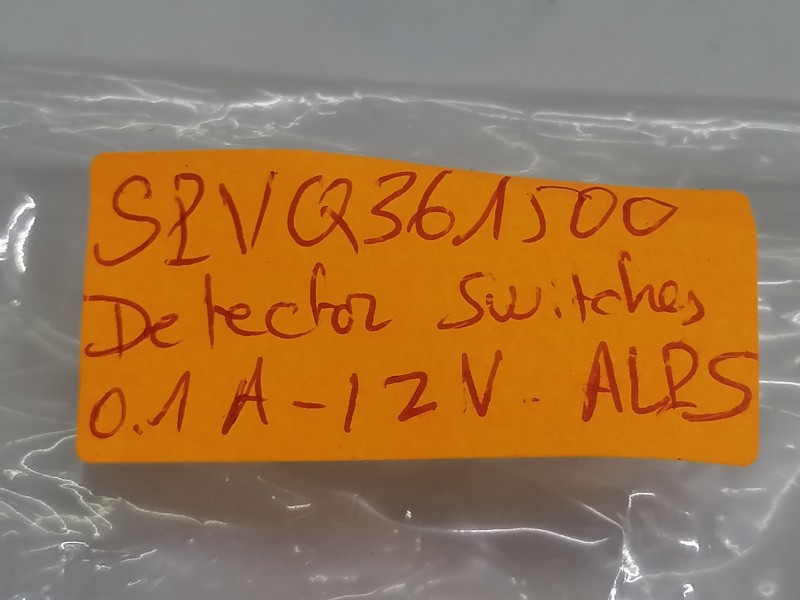 SPVQ361500
Detector switches
0.1 A - 12 V - ALPS